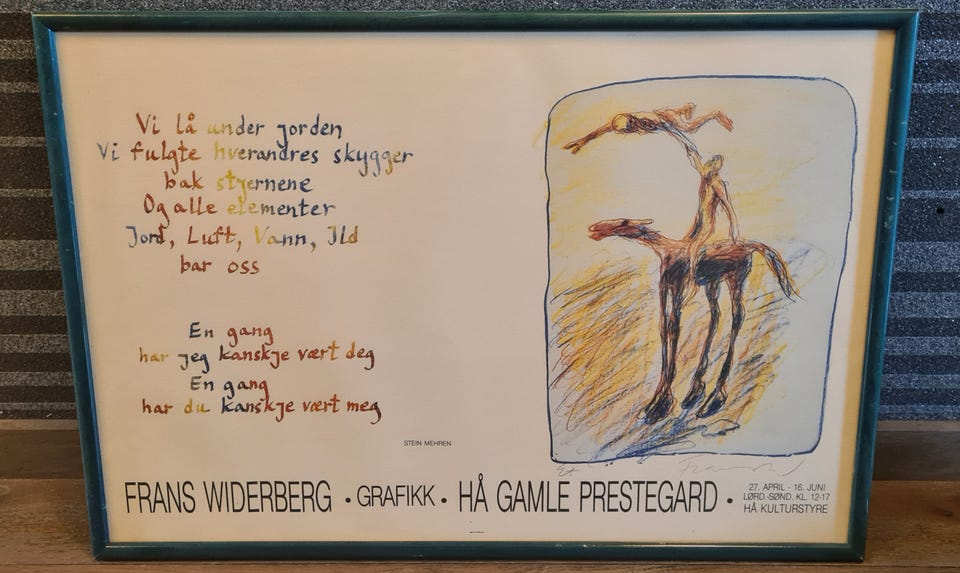 Vi lå under jorden
Vi fulgte hverandres skygger
bak stjernene
Og alle elementer
Jord, Luft, Vann, Ild
bar oss
En gang
har jeg kanskje vært deg
En gang
har du kanskje vært meg
STEIN MEHREN
FRANS WIDERBERG • GRAFIKK • HÅ GAMLE PRESTEGARD •
27. APRIL - 16. JUNI
LØRD.-SØND. KL. 12-17
HÅ KULTURSTYRE